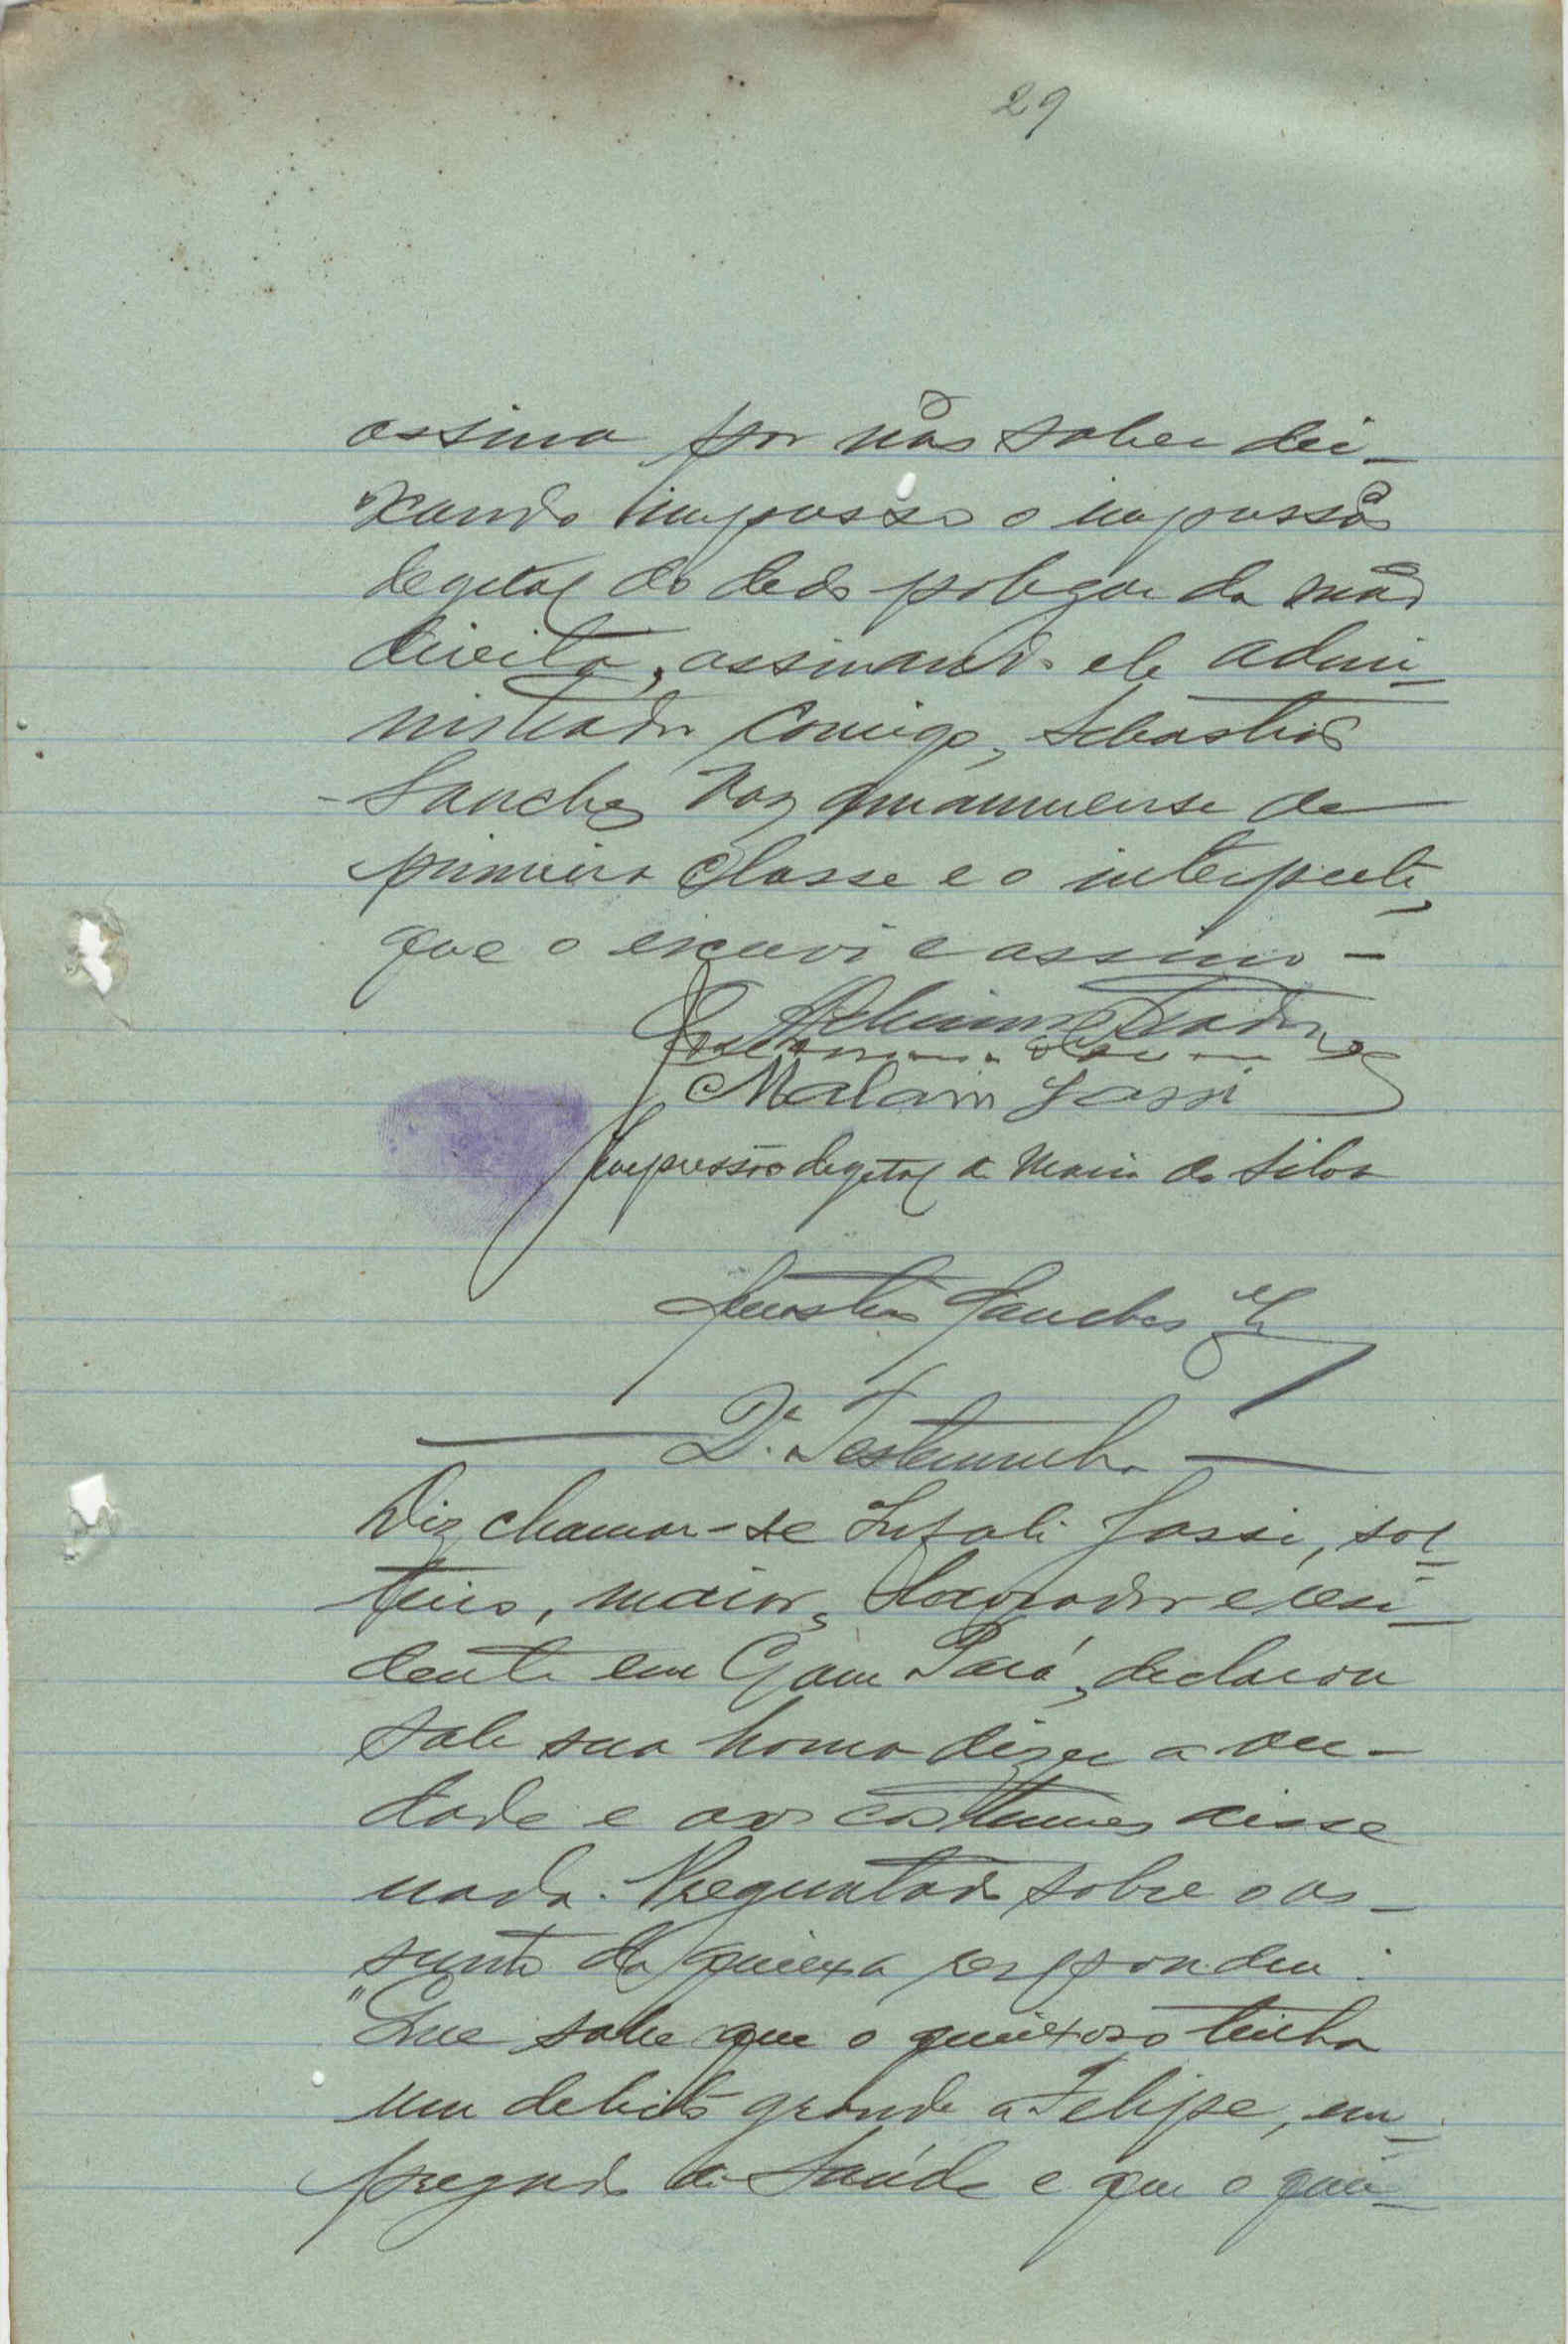 29
assina por não saber dei-
xando impresso o impressão
degital do dedo polegar da mão
direita, assinando ele admi-
nistrador comigo, Sebastião
Sanches Vaz amanuense de
primeira classe e o interprete,
que o escrevi e assino -
O Administrador
Malam Sassi
Impressão degital de Maria da Silva
Sebastião Sanches Vaz
2ª Testemunha
Diz chamar-se Infali Sassi, sol-
teiro, maior, lavrador e resi-
dente em Gam Pará, declarou
sob sua honra dizer a ver-
dade e aos costumes disse
nada. Preguntado sobre o as-
sunto da queixa respondeu:
"Que sabe que o queixoso tinha
um debito grande a Felipe, em-
pregado da Saúde e que o quei-